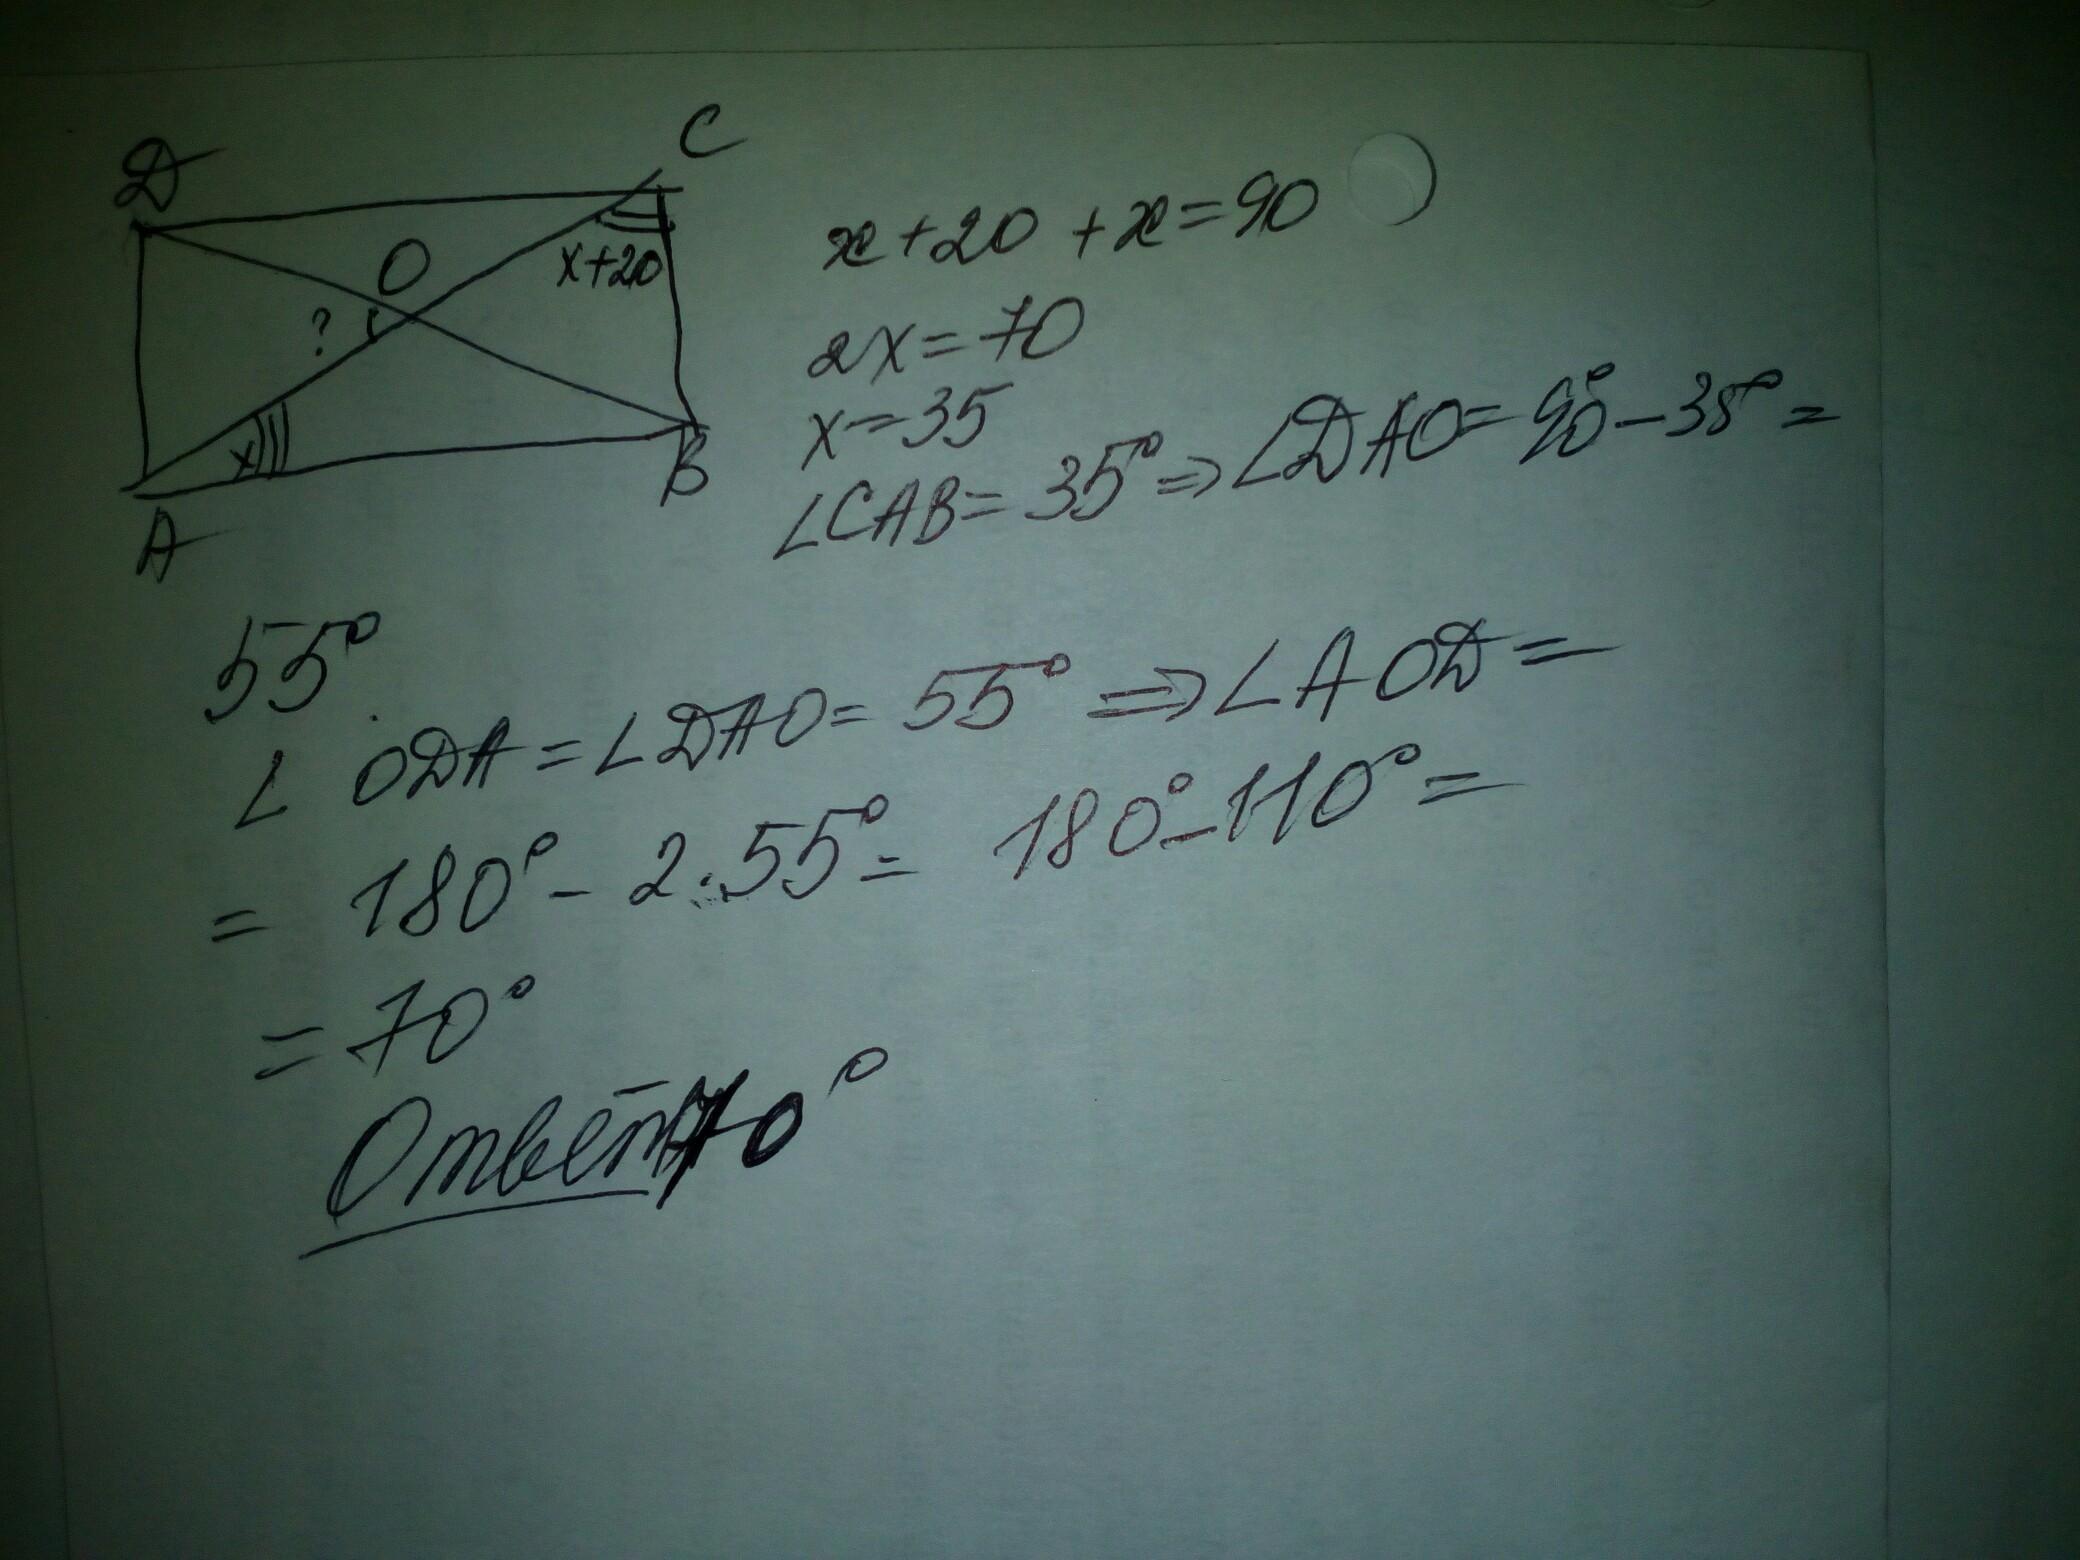 D
C
O
x+20
?
x
B
A
x+20+x=90
2x=70
x=35
∠CAB=35°⇒∠DAO=90°-35°=
55°
∠ODA=∠DAO=55°⇒∠AOD=
=180°-2·55°=180°-110°=
=70°
Ответ 70°